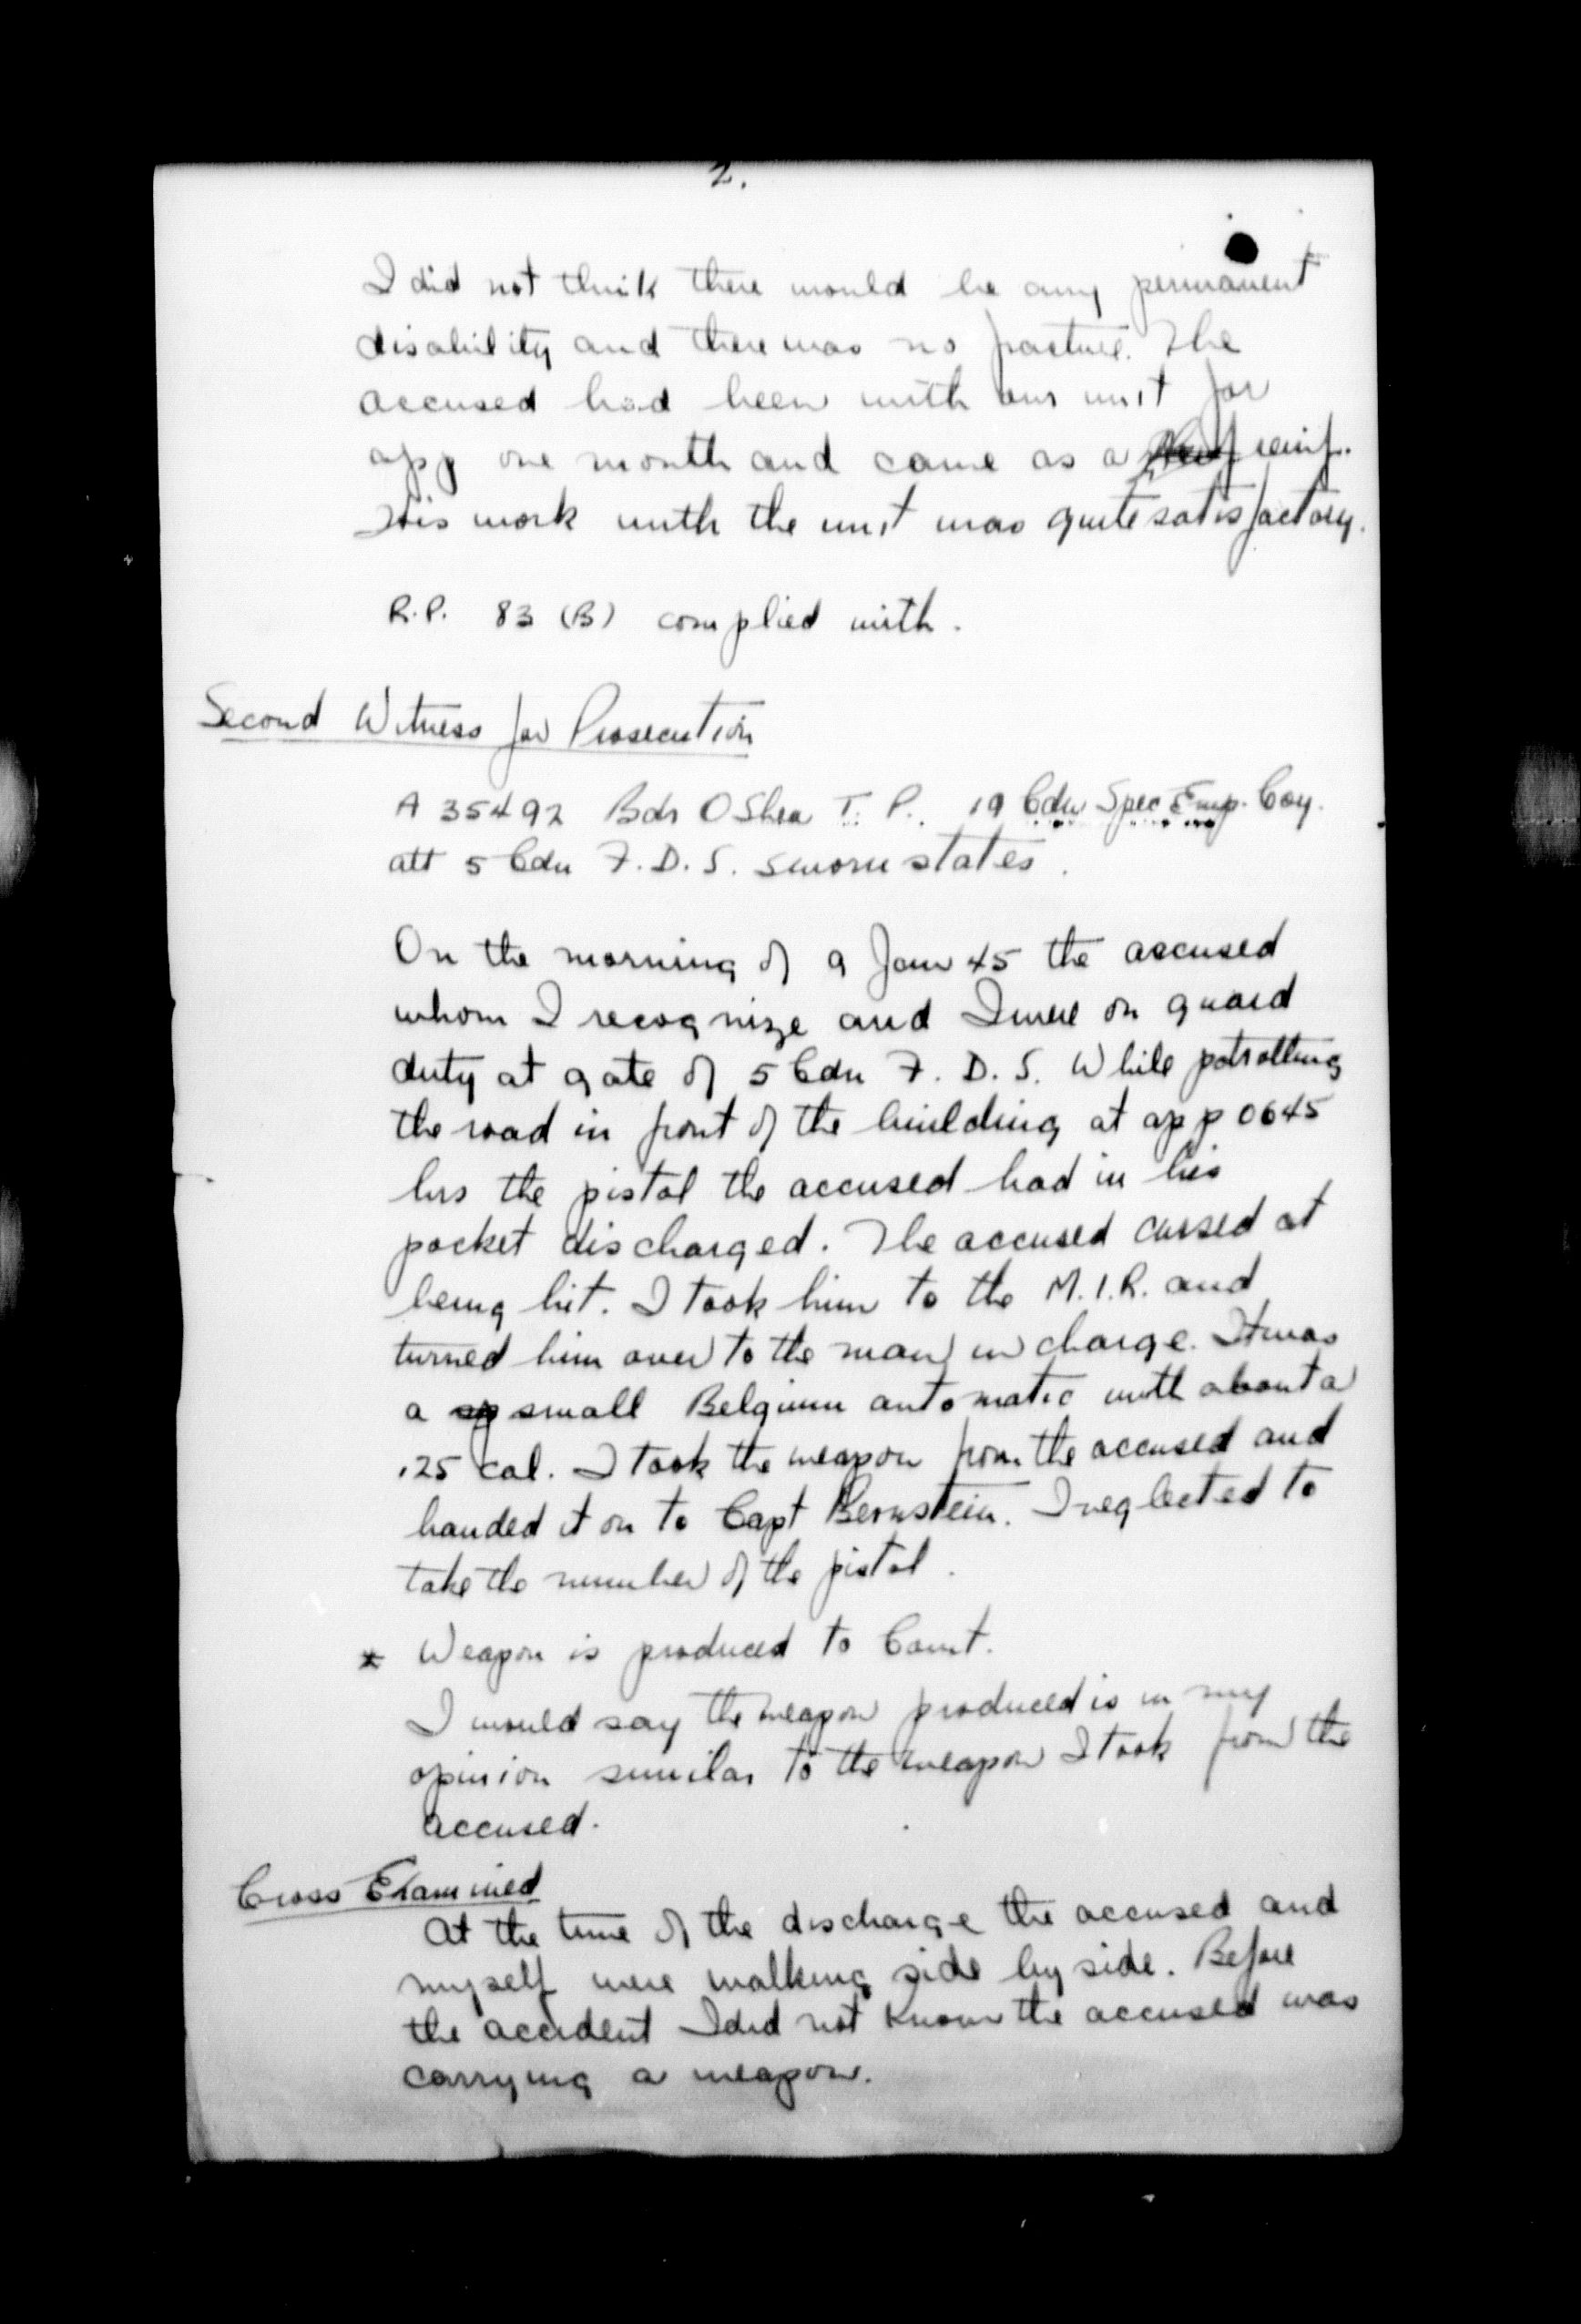 2.
I did not think there would be any permanent
disability and there was no fracture. The
accused had been with our unit for
app one month and came as a reinf.
His work with the unit was quite satisfactory.
R.P. 83 (B) complied with.
Second Witness for Prosecution
A 35492 Bdr O Shea T. P. 19 Cdn Spec Emp. Coy.
att 5 Cdn F. D. S. sworn states.
On the morning of 9 Jan 45 the accused
whom I recognize and I were on guard
duty at gate of 5 Cdn F. D. S. While patrolling
the road in front of the building at app 0645
hrs the pistol the accused had in his
pocket discharged. The accused cursed at
being hit. I took him to the M.I.R. and
turned him over to the man in charge. It was
a small Belgium automatic with about a
.25 cal. I took the weapon from the accused and
handed it on to Capt Bernstein. I neglected to
take the number of the pistol.
* Weapon is produced to Court.
I would say the weapon produced is in my
opinion similar to the weapon I took from the
accused.
Cross Examined
At the time of the discharge the accused and
myself were walking side by side. Before
the accident I did not know the accused was
carrying a weapon.